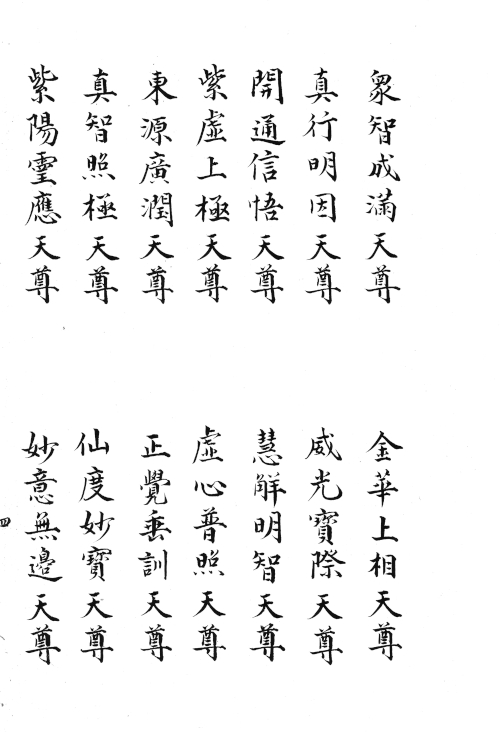 衆智成滿天尊
金華上相天尊
真行明因天尊
威光寶際天尊
開通信悟天尊
慧解明智天尊
紫虛上極天尊
虛心普照天尊
東源廣潤天尊
正覺垂訓天尊
真智照極天尊
仙度妙寶天尊
紫陽靈應天尊
妙意無邊天尊
四